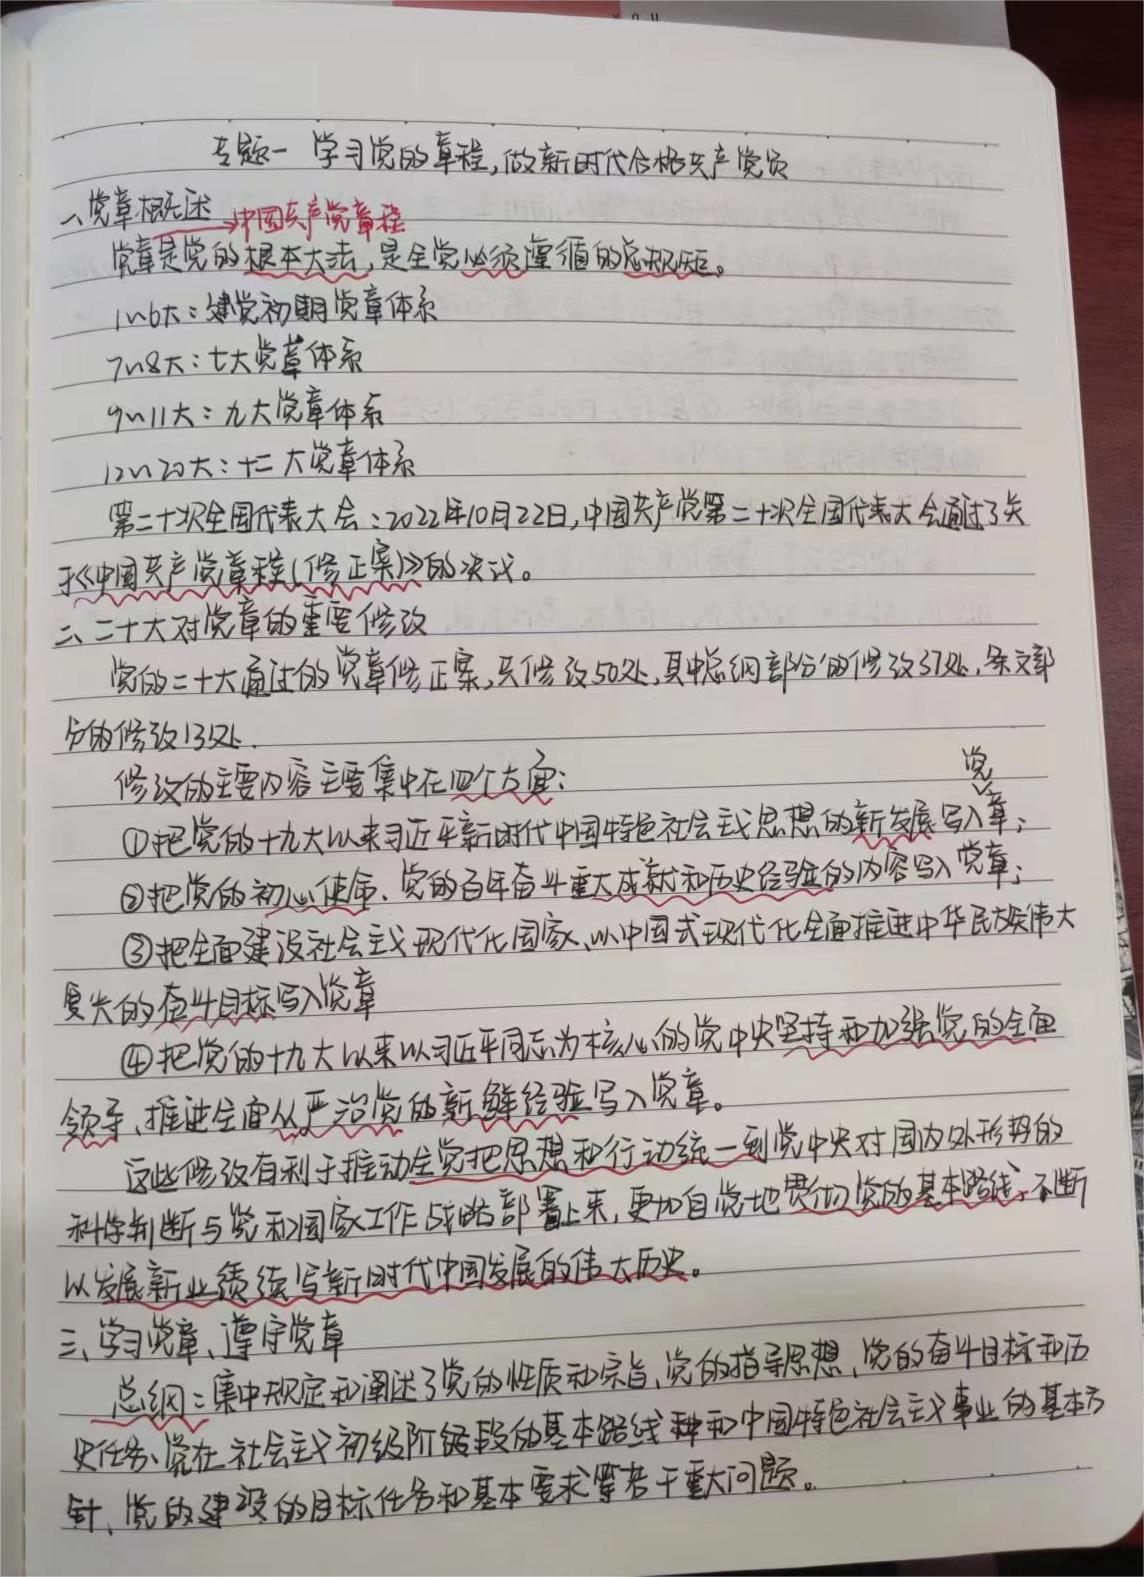 YOU
专题一 学习党的章程,做新时代合格共产党员
一、党章概述→中国共产党章程
党章是党的根本大法,是全党必须遵循的总规矩。
1~6大:建党初期党章体系
7~8大:七大党章体系
9~11大:九大党章体系
12~20大:十二大党章体系
第二十次全国代表大会:2022年10月22日,中国共产党第二十次全国代表大会通过了关
于《中国共产党章程(修正案)》的决议。
二、二十大对党章的重要修改
党的二十大通过的党章修正案,共修改50处,其中总纲部分的修改37处,条文部
分的修改13处.
修改的主要内容主要集中在四个方面:
①把党的十九大以来习近平新时代中国特色社会主义思想的新发展写入党章;
②把党的初心使命、党的百年奋斗重大成就和历史经验的内容写入党章;
③把全面建设社会主义现代化国家、以中国式现代化全面推进中华民族伟大
复兴的奋斗目标写入党章
④把党的十九大以来以习近平同志为核心的党中央坚持和加强党的全面
领导、推进全面从严治党的新鲜经验写入党章。
这些修改有利于推动全党把思想和行动统一到党中央对国内外形势的
科学判断与党和国家工作战略部署上来,更加自觉地贯彻党的基本路线,不断
以发展新业绩续写新时代中国发展的伟大历史。
三、学习党章、遵守党章
总纲:集中规定和阐述了党的性质和宗旨、党的指导思想、党的奋斗目标和历
史任务、党在社会主义初级阶段的基本路线和中国特色社会主义事业的基本方
针、党的建设的目标任务和基本要求等若干重大问题。